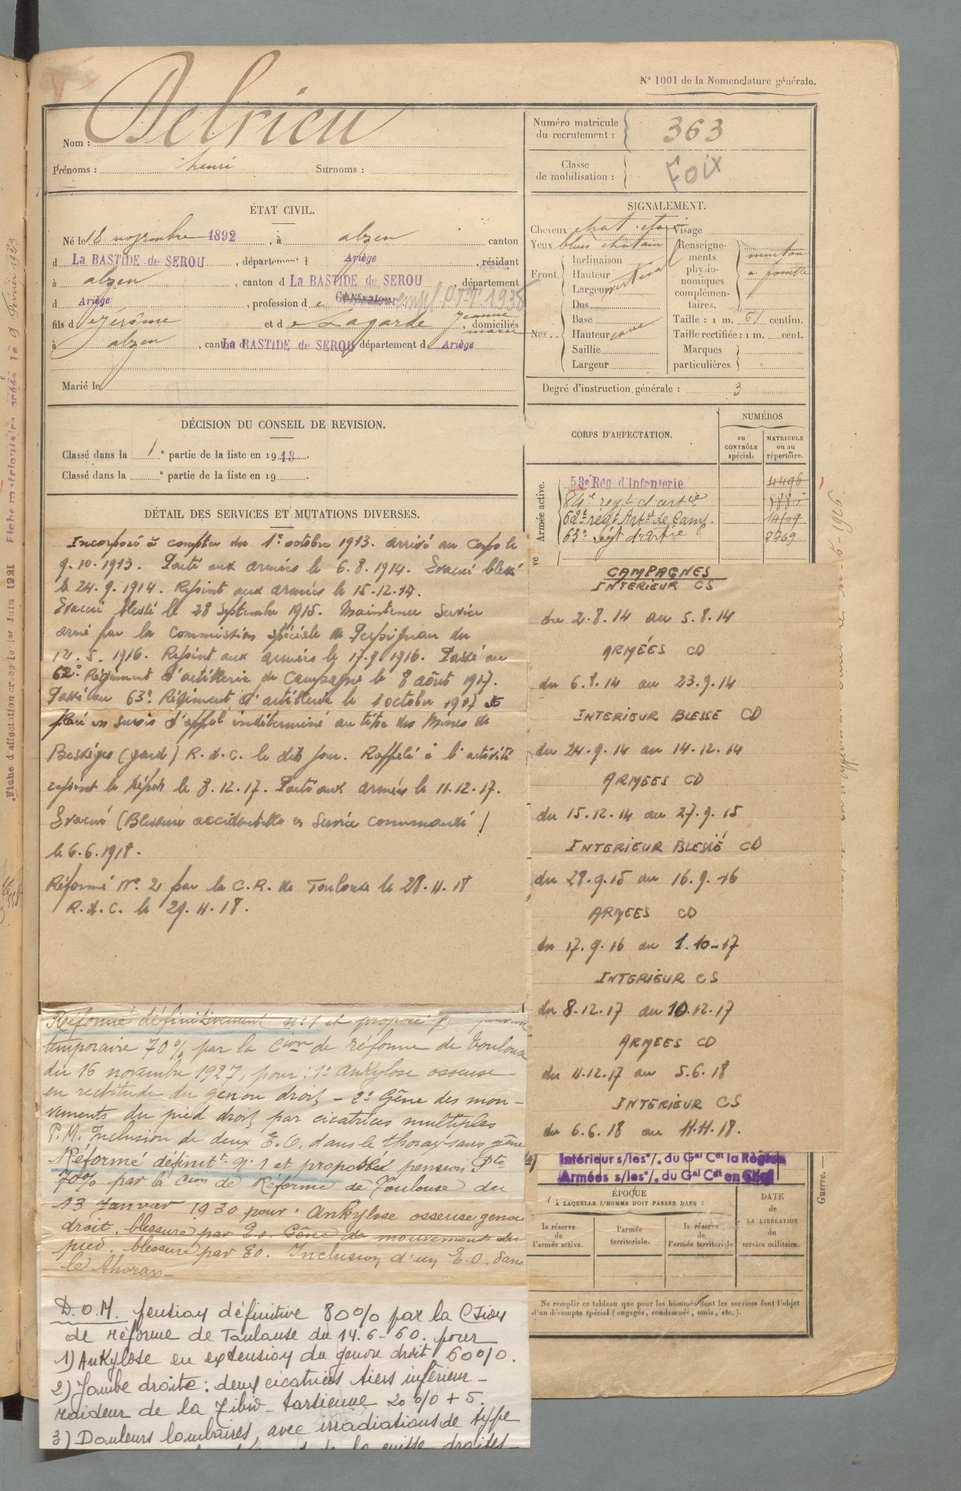 N° 1001 de la Nomenclature générale.
Nom : Delrieu
Prénoms : henri Surnoms :
Numéro matricule du recrutement : 363
Classe de mobilisation : Foix
ÉTAT CIVIL.
Né le 18 novembre 1892, à alzen canton
d La BASTIDE de SEROU, département d Ariège, résidant
à alzen, canton d La BASTIDE de SEROU, département
d Ariège, profession de empl. P.T.T. 1935
fils de Jérôme et de Lagarde Jeanne marie, domiciliés
à alzen, canton d La BASTIDE de SEROU département d Ariège
Marié le
SIGNALEMENT.
Cheveux chat. Visage
Yeux bleus
Front
Inclinaison
Hauteur
Largeur
Dos
Nez
Base
Hauteur
Saillie
Largeur
Renseignements physionomiques complémentaires.
Taille : 1 m. 61 centim.
Taille rectifiée : 1 m. cent.
Marques particulières.
Degré d'instruction générale : 3
DÉCISION DU CONSEIL DE REVISION.
Classé dans la 1e partie de la liste en 1913
Classé dans la e partie de la liste en 19
CORPS D'AFFECTATION.
NUMÉROS
au CONTRÔLE spécial.
MATRICULE ou au répertoire.
Armée active.
53e Rég. d'Infanterie.
62e regt Artie de Camp.
63e regt d'Artie
DÉTAIL DES SERVICES ET MUTATIONS DIVERSES.
Incorporé à compter du 1er octobre 1913. arrivé au Corps le
9.10.1913. Parti aux armées le 6.8.1914. Evacué blessé
le 24.9.1914. Rejoint aux armées le 15.12.14.
Evacué blessé le 28 Septembre 1915. Maintenu Service
armé par la Commission spéciale de Perpignan du
12.5.1916. Rejoint aux armées le 17.9.1916. Passé au
62e Régiment d'artillerie de Campagne le 8 août 1917.
Passé au 63e Régiment d'artillerie le 1 octobre 1917 et
placé en Sursis d'appel indéterminé au titre des Mines de
Bessèges (gard) R.d.C. le dit jour. Rappelé à l'activité
rejoint le dépôt le 8.12.17. Parti aux armées le 11.12.17.
Evacué (Blessure accidentelle en Service commandé)
le 6.6.1918.
Réformé N° 2 par la C.R. de Toulouse le 28.11.18
R.d.C. le 29.11.18.
CAMPAGNES
INTERIEUR CS
du 2.8.14 au 5.8.14
ARMÉES CD
du 6.8.14 au 23.9.14
INTERIEUR BLESSE CD
du 24.9.14 au 14.12.14
ARMEES CD
du 15.12.14 au 27.9.15
INTERIEUR BLESSÉ CD
du 28.9.15 au 16.9.16
ARMEES CD
du 17.9.16 au 1.10-17
INTERIEUR CS
du 8.12.17 au 10.12.17
ARMEES CD
du 11.12.17 au 5.6.18
INTERIEUR CS
du 6.6.18 au 11.11.18.
Réformé définitivement n° 1 et proposé
temporaire 70% par la Cion de réforme de Toulouse
du 16 novembre 1927, pour : 1° Ankylose osseuse
en rectitude du genou droit - 2° Gêne des mou-
vements du pied droit par cicatrices multiples
P.M. Inclusion de deux E.O. dans le thorax sans gêne
Réformé définitt n° 1 et proposé pension Pte
70% par la Cion de Réforme de Toulouse du
13 Janvier 1930 pour : Ankylose osseuse genou
droit, blessure par Eo. Gêne du mouvement du
pied, blessure par Eo. Inclusion d'un E.O. dans
le thorax -
Intérieur s/les o/. du Gal Cdt la Région
Armées s/les o/. du Gal Cdt en Chef
ÉPOQUE
À LAQUELLE L'HOMME DOIT PASSER DANS :
la réserve de l'armée active.
l'armée territoriale.
la réserve de l'armée territoriale
DATE de LA LIBÉRATION du service militaire.
Guerre. —
Ne remplir ce tableau que pour les hommes dont les services font l'objet
d'un décompte spécial (engagés, condamnés, omis, etc.)
D.O.M. pension définitive 80% par la Csion
de réforme de Toulouse du 14.6-60. pour
1) Ankylose en extension du genou droit 60%.
2) Jambe droite : deux cicatrices tiers inférieur -
raideur de la Tibio-tarsienne 20% + 5.
3) Douleurs lombaires, avec irradiations de type
de la cuisse droite -